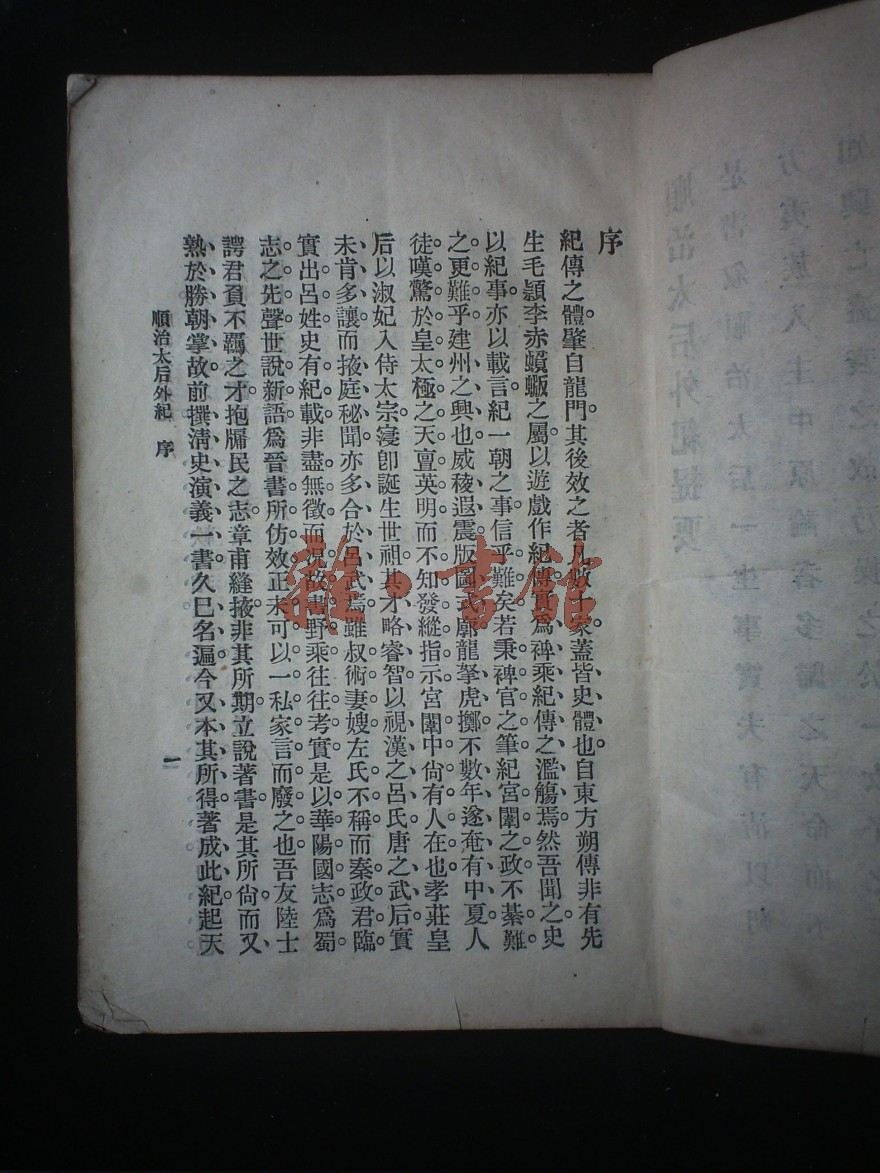 序
紀傳之體。肇自龍門。其後效之者凡數十家。蓋皆史體也。自東方朔傳非有先
生毛穎李赤蝜蝂之屬。以遊戲作紀傳。實爲稗乘紀傳之濫觴焉。然吾聞之史
以紀事。亦以載言。紀一朝之事。信乎難矣。若秉稗官之筆。紀宮闈之政。不綦難
之更難乎。建州之興也。威稜遐震。版圖式廓。龍拏虎擲。不數年遂奄有中夏。人
徒嘆驚於皇太極之天亶英明。而不知發縱指示。宮闈中尙有人在也。孝莊皇
后以淑妃入侍太宗。寖卽誕生世祖。其才略睿智。以視漢之呂氏唐之武后。實
未肯多讓。而掖庭秘聞。亦多合於呂武焉。雖叔術妻嫂。左氏不稱。而秦政君臨。
實出呂姓。史有紀載。非盡無徵。而況故書野乘。往往考實。是以華陽國志。爲蜀
志之先聲。世說新語。爲晉書所仿效。正未可以一私家言而廢之也。吾友陸士
諤君。負不羈之才。抱牖民之志。章甫縫掖。非其所期。立說著書。是其所尙。而又
熟於勝朝掌故。前撰淸史演義一書。久已名遍。今又本其所得。著成此紀。起天
順治太后外紀 序
一
順治太后外紀提要
雜·書館